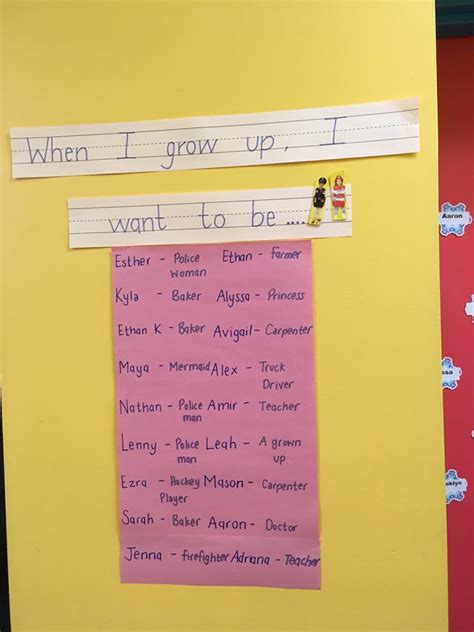 When I grow up, I
want to be ....
Esther - Police Woman Ethan - Farmer
Kyla - Baker Alyssa - Princess
Ethan K - Baker Avigail - Carpenter
Maya - Mermaid Alex - Truck Driver
Nathan - Police man Amir - Teacher
Lenny - Police man Leah - A grown up
Ezra - Hockey Player Mason - Carpenter
Sarah - Baker Aaron - Doctor
Jenna - firefighter Adriana - Teacher
Aaron